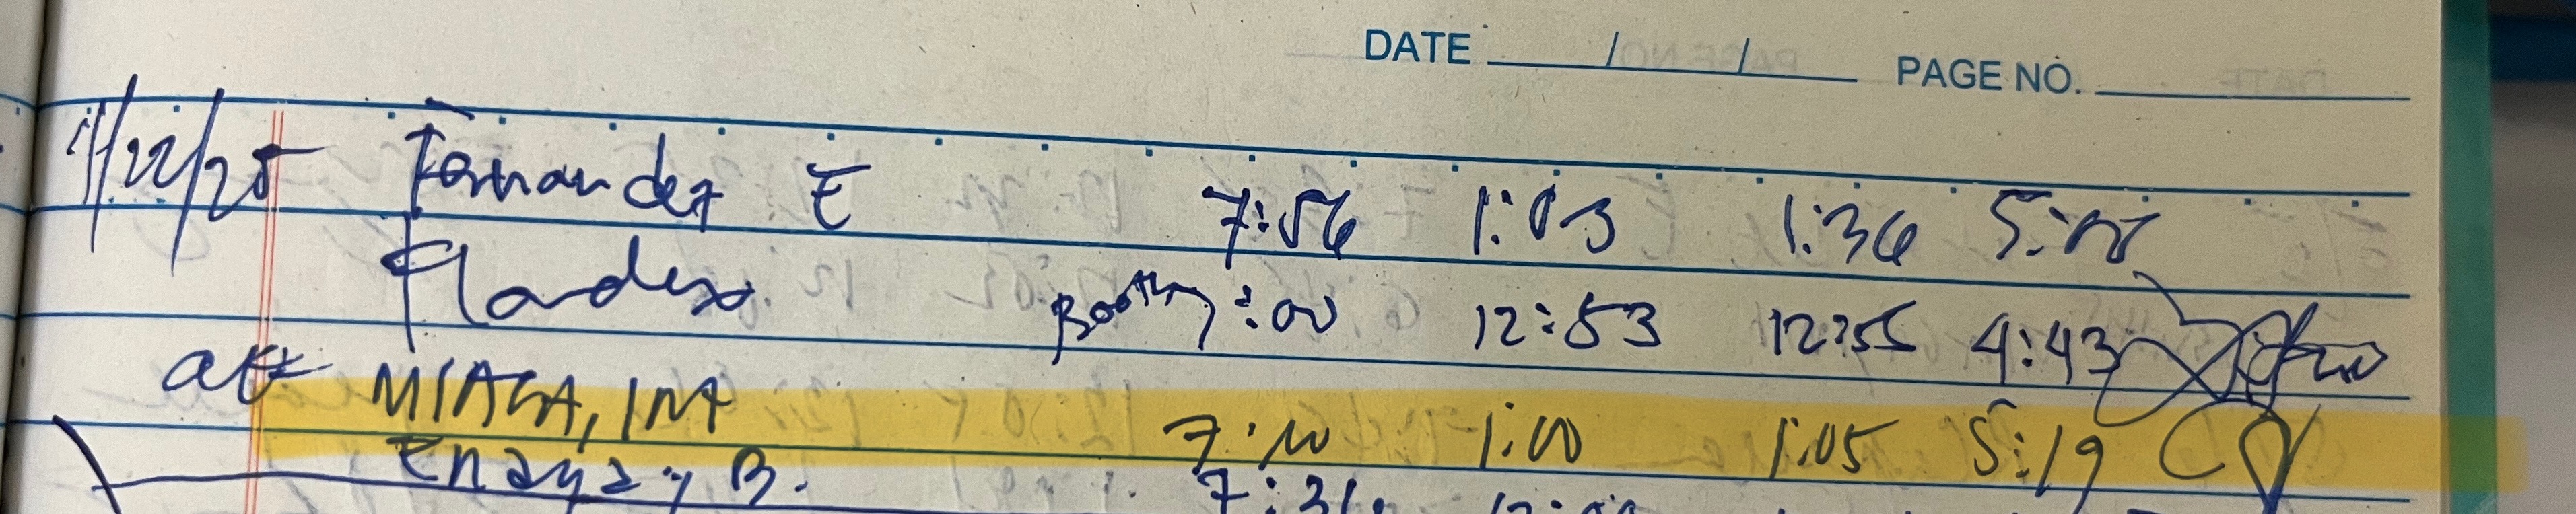 DATE / / PAGE NO.
11/22/25 Fernandez E 7:56 1:03 1:36 5:00
Flordeza Booth 7:00 12:53 12:55 4:43
MIAGA, INA 7:10 1:00 1:05 5:19
Enaya, B. 7:31